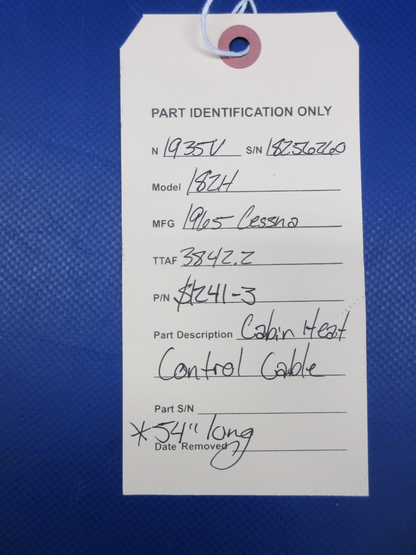 PART IDENTIFICATION ONLY
N 1935V S/N 18256260
Model 182H
MFG 1965 Cessna
TTAF 3842.2
P/N S1241-3
Part Description Cabin Heat
Control Cable
Part S/N
*54" long
Date Removed